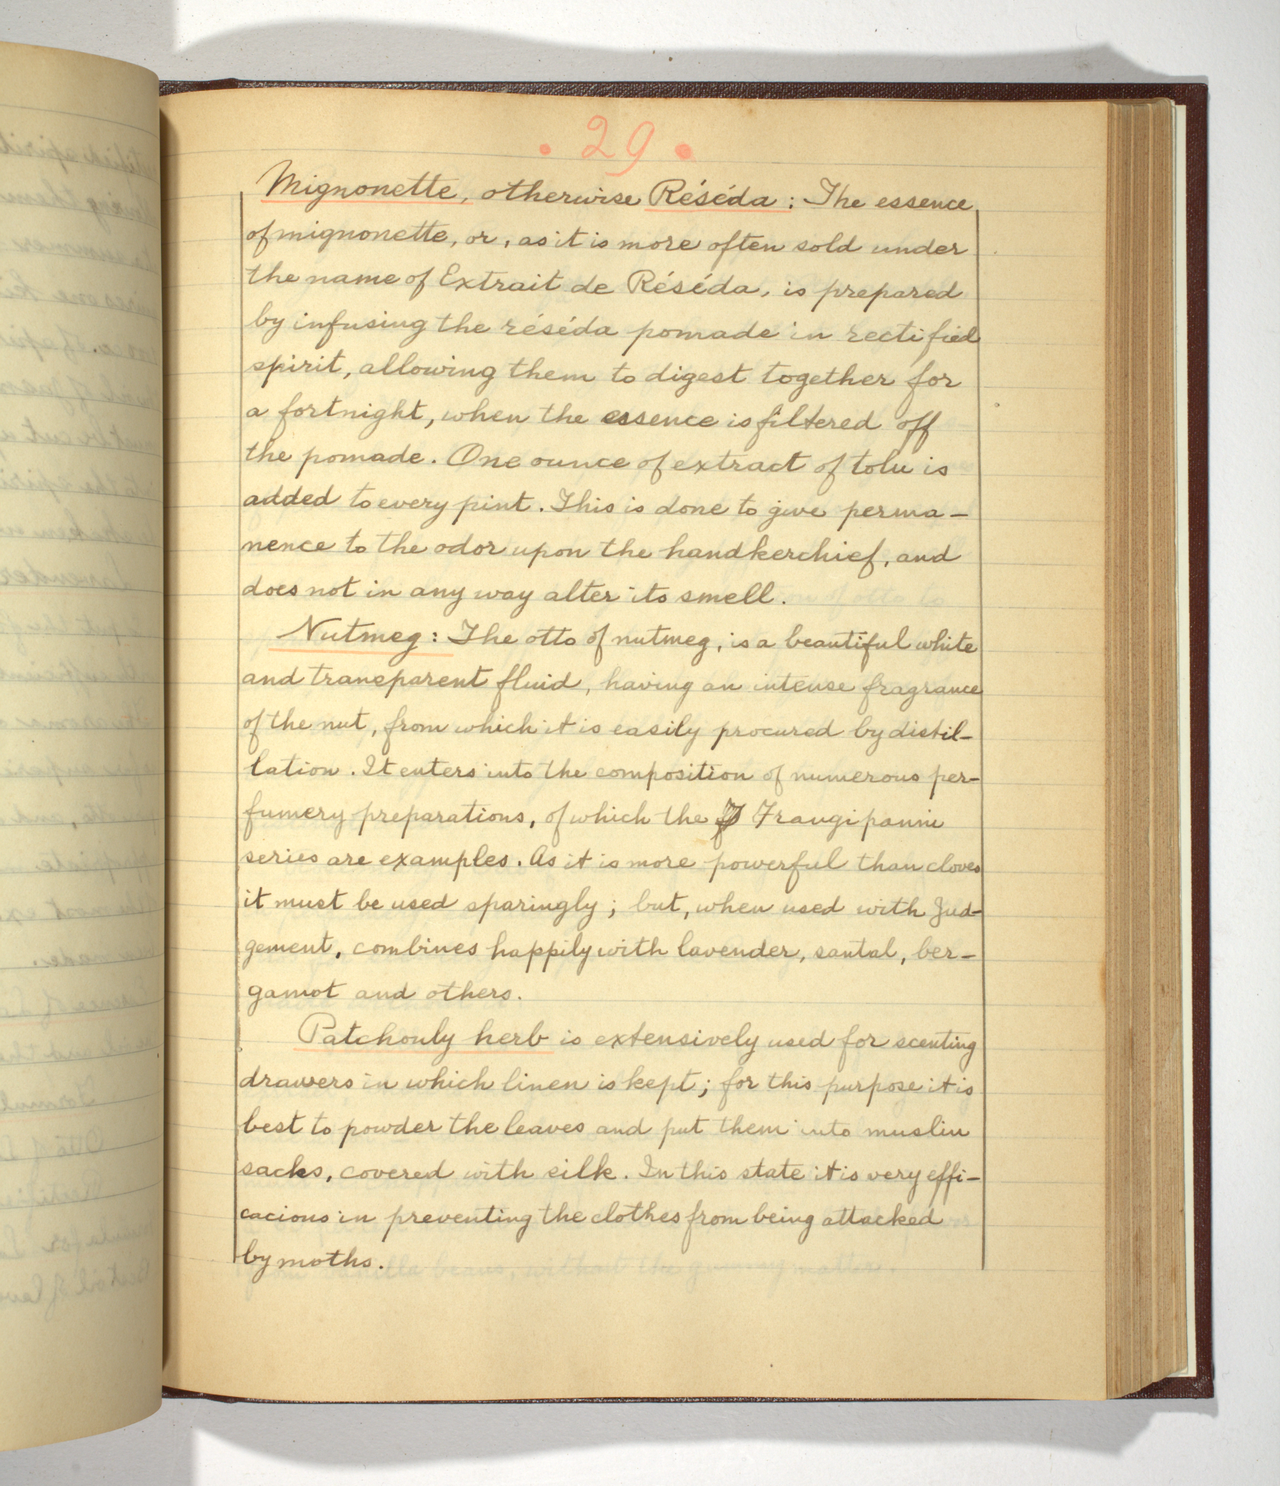 • 29 •
Mignonette, otherwise Réséda: The essence
of mignonette, or, as it is more often sold under
the name of Extrait de Réséda, is prepared
by infusing the réséda pomade in rectified
spirit, allowing them to digest together for
a fortnight, when the essence is filtered off
the pomade. One ounce of extract of tolu is
added to every pint. This is done to give perma-
nence to the odor upon the handkerchief, and
does not in any way alter its smell.
Nutmeg: The otto of nutmeg, is a beautiful white
and transparent fluid, having an intense fragrance
of the nut, from which it is easily procured by distil-
lation. It enters into the composition of numerous per-
fumery preparations, of which the Frangipanni
series are examples. As it is more powerful than cloves
it must be used sparingly; but, when used with jud-
gement, combines happily with lavender, santal, ber-
gamot and others.
Patchouly herb is extensively used for scenting
drawers in which linen is kept; for this purpose it is
best to powder the leaves and put them into muslin
sacks, covered with silk. In this state it is very effi-
cacious in preventing the clothes from being attacked
by moths.